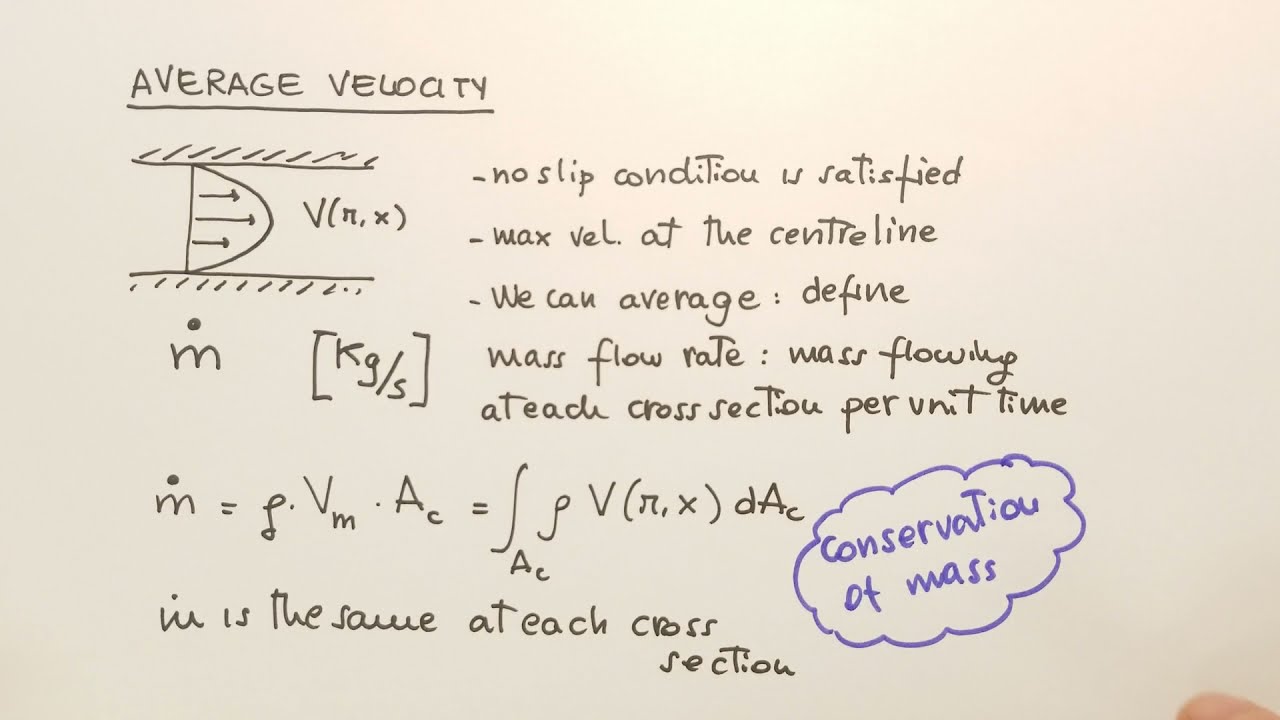 AVERAGE VELOCITY
V(r,x)
- no slip condition is satisfied
- max vel. at the centreline
- We can average : define
mass flow rate : mass flowing
at each cross section per unit time
ṁ [Kg/s]
ṁ = ρ · Vm · Ac = ∫Ac ρ V(r,x) dAc
conservation
of mass
ṁ is the same at each cross
section